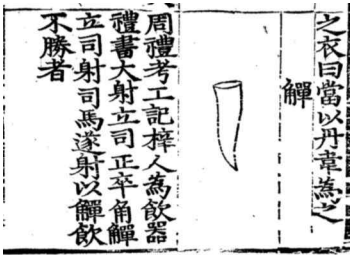 之衣曰當以丹韋為之
觶
周禮考工記梓人為飲器
禮書大射立司正卒角觶
立司射司馬遂射以觶飲
不勝者